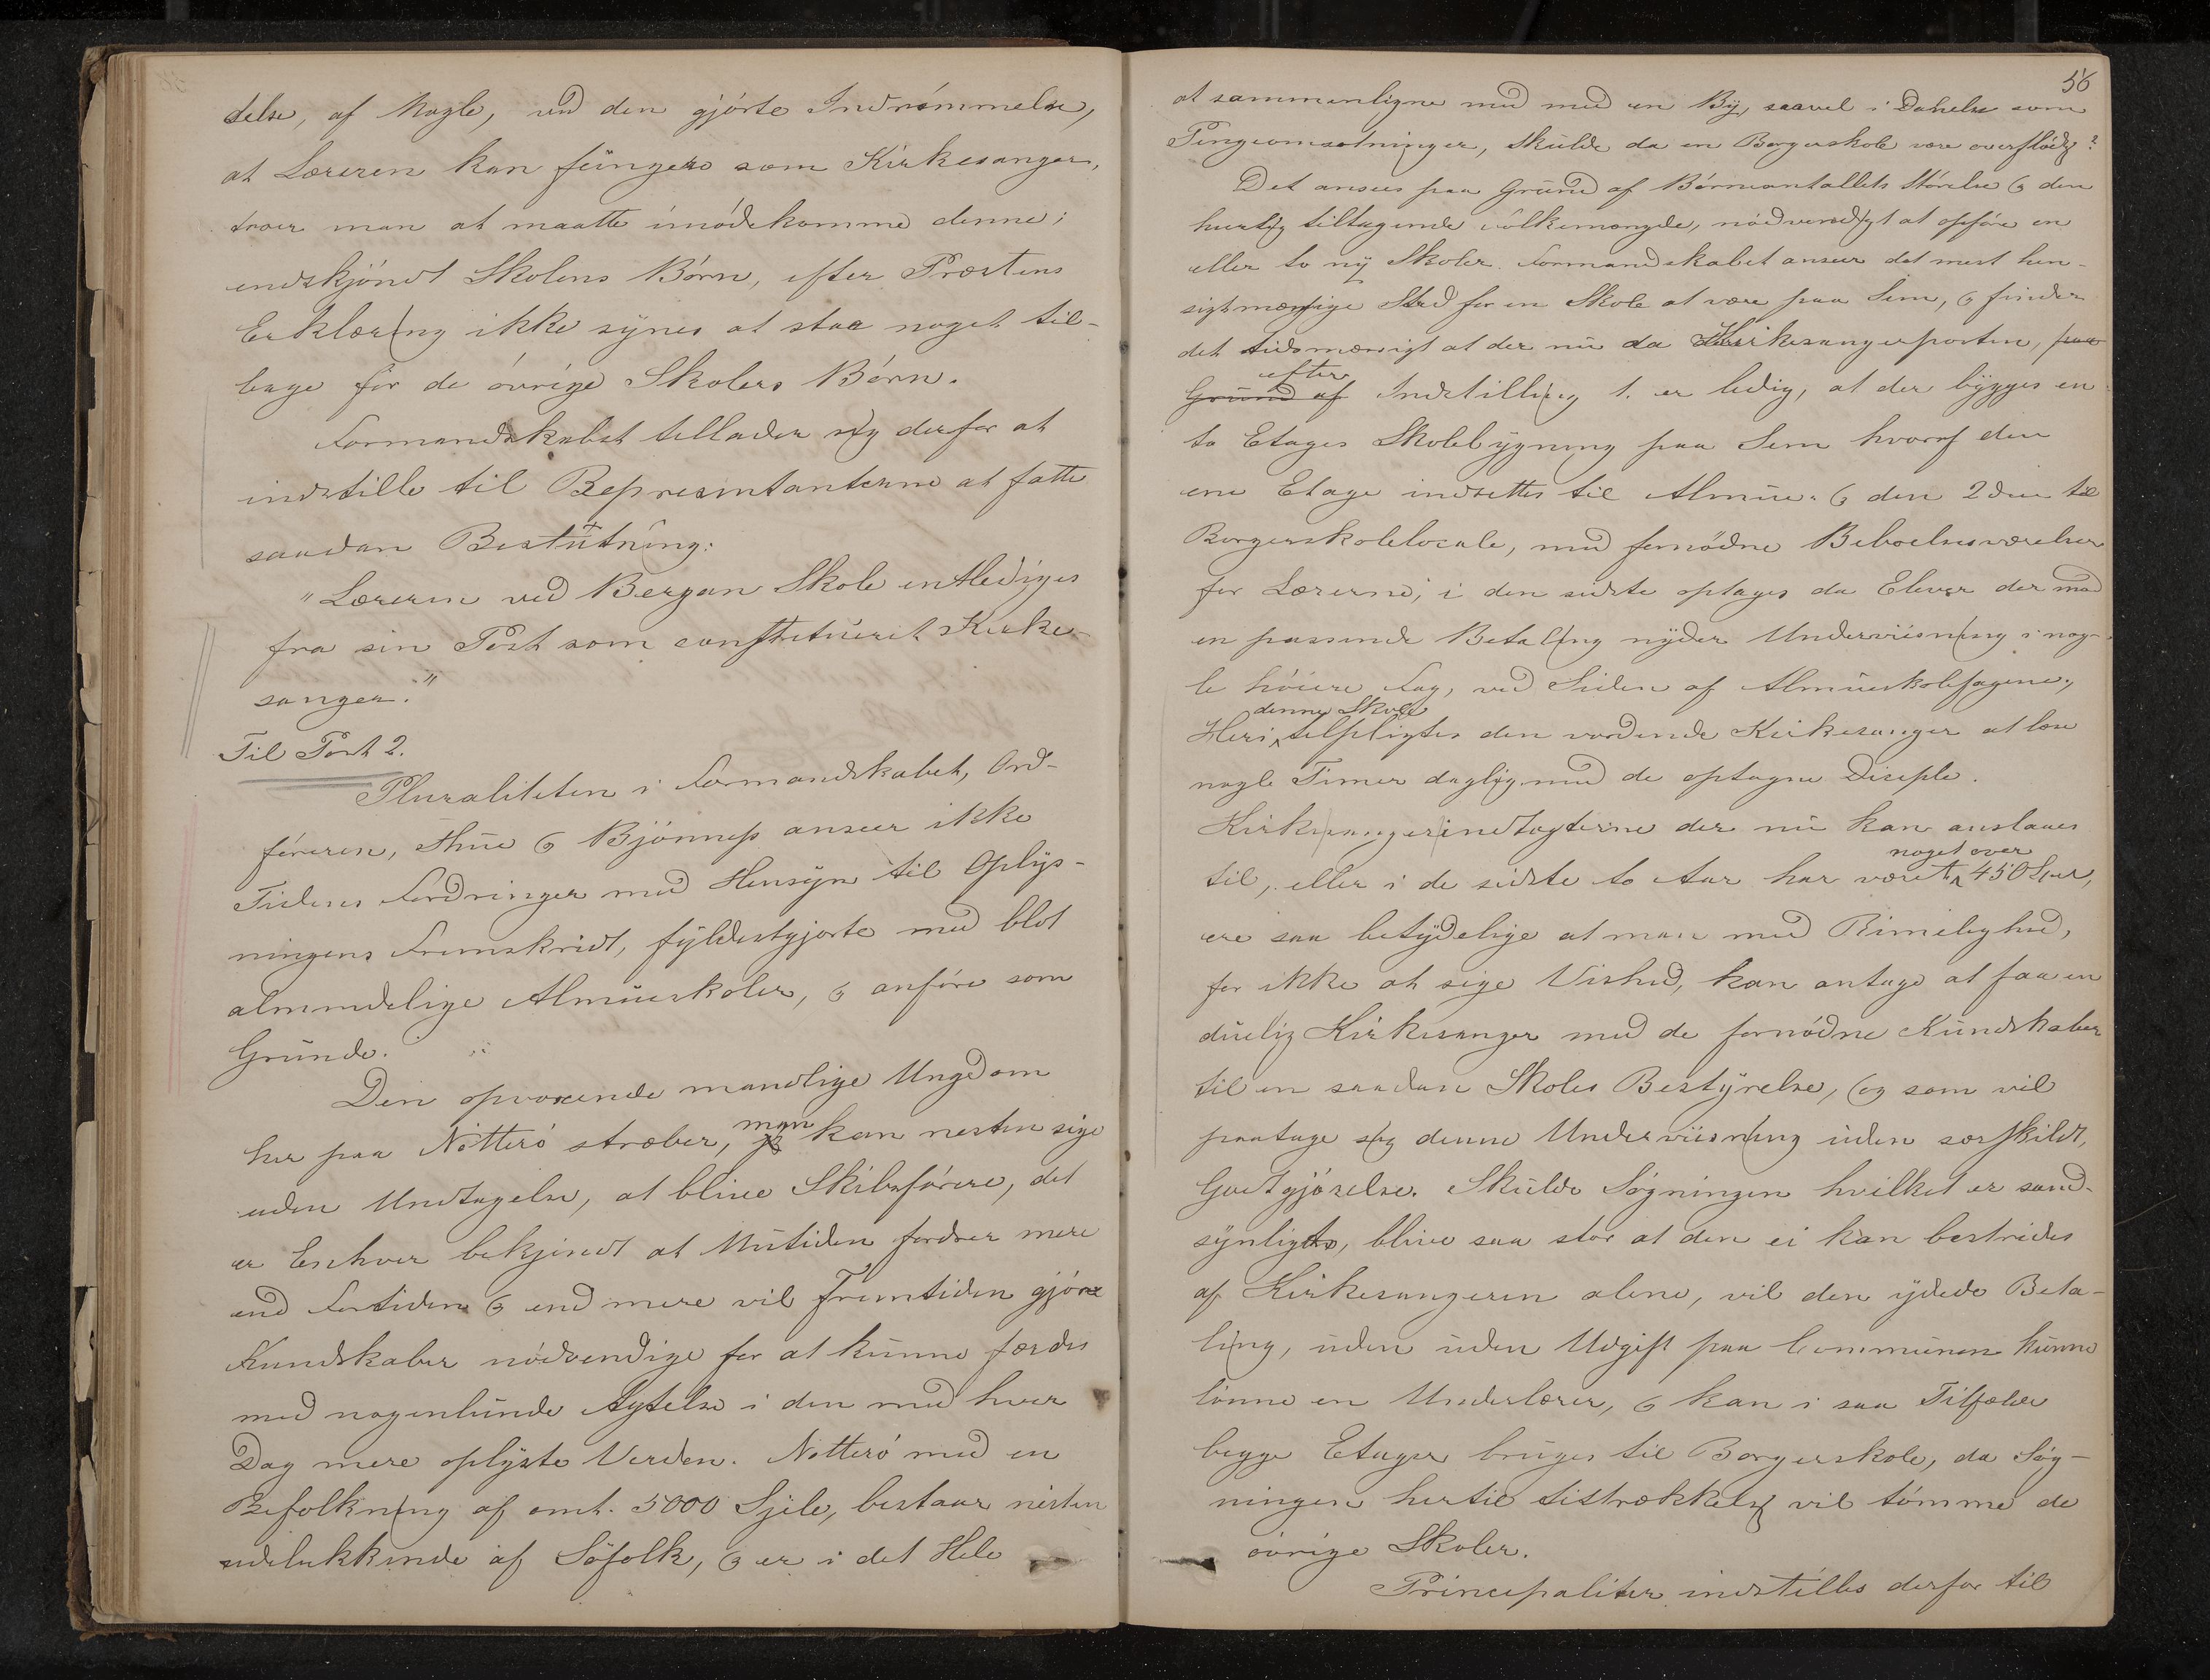 delse, af Nogle, ved den gjörte Indrömmelse,
at Læreren kan fungere som Kirkesanger,
troer man at maatte imödekomme denne;
endskjöndt Skolens Börn, efter Præstens
Erklæring ikke synes at staa noget til-
bage for de övrige Skolers Börn.
Formandskabet tillader sig derfor at
indstille til Representanterne at fatte
saadan Beslutning:
"Læreren ved Bergan Skole entlediges
fra sin Post som constitueret Kirke-
sanger."
Til Post 2.
Pluraliteten i Formandskabet, Ord-
föreren, Thue & Bjönness anseer ikke
Tidens Fordringer med Hensyn til Oplys-
ningens Fremskridt, fyldestgjorte med blot
almindelige Almueskoler, & anföre som
Grunde.
Den opvoxende mandlige Ungdom
her paa Nötterö stræber, man kan nesten sige
uden Undtagelse, at blive Skibsförere, det
er Enhver bekjendt at Nutiden fordrer mere
end Fortiden & end mere vil Fremtiden gjöre
Kundskaber nödvendige for at kunne færdes
med nogenlunde Agtelse i den med hver
Dag mere oplyste Verden. Nötterö med en
Befolkning af omt. 5000 Sjele, bestaar nesten
udelukkende af Söfolk, & er i det Hele
56
at sammenligne med med en By, saavel i Danelse som
Pengeomsetninger, skulde da en Borgerskole være overflödig?
Det ansees paa Grund af Börneantallets Störelse & den
hurtig tiltagende Folkemængde, nödvendigt at opföre en
eller to ny Skoler. Formandskabet anseer det mest hen-
sigtmæssige Sted for en Skole at være paa Sem, & finder
det tidsmæssigt at der nu da Kirkesangerposten, paa
efter
Grund af Indstilling 1. er ledig, at der bygges en
to Etages Skolebygning paa Sem hvoraf den
ene Etage indrettes til Almue- & den 2den til
Borgerskolelocale, med fornödne Beboelsesværelser
for Lærerne; i den sidste optages da Elever der mod
en passende Betaling nyder Underviisning i nog-
le höiere Fag, ved Siden af Almueskolefagene,
denne Skole
Heri tilpligtes den vordende Kirkesanger at læse
nogle Timer daglig med de optagne Disciple.
Kirkesangerindtægterne der nu kan anslaaes
noget over
til, eller i de sidste to Aar har været 450 Spd,
ere saa betydelige at man med Rimelighed,
for ikke at sige Vished, kan antage at faa en
duelig Kirkesanger med de fornödne Kundskaber
til en saadan Skoles Bestyrelse, og som vil
paatage sig denne Underviisning uden særskildt,
Godtgjörelse. Skulde Sögningen hvilket er sand-
synligts, blive saa stor at den ei kan bestrides
af Kirkesangeren alene, vil den ydede Beta-
ling, uden uden Udgift paa Communen kunne
lönne en Underlærer, & kan i saa Tilfælde
begge Etager bruges til Borgerskole, da Sög-
ningen hertil tistrækkelig vil tömme de
övrige Skoler.
Principaliter indstilles derfor til